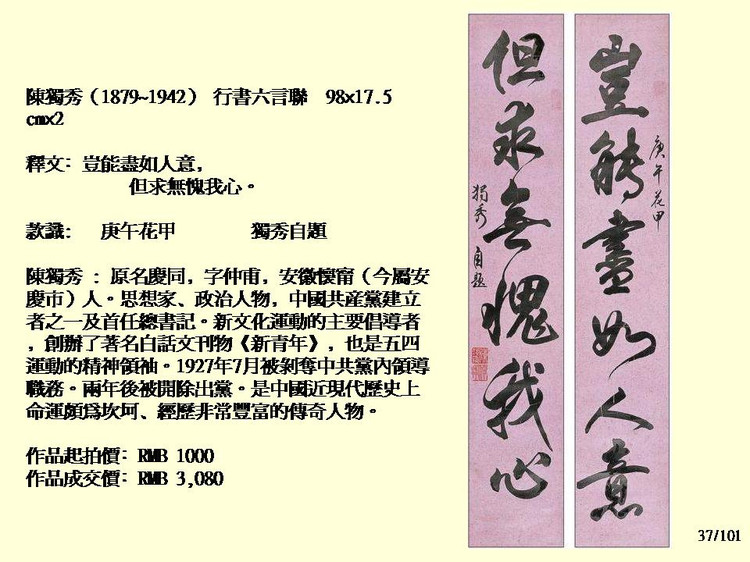 陳獨秀（1879~1942） 行書六言聯 98x17.5
cmx2
釋文: 豈能盡如人意，
但求無愧我心。
款識: 庚午花甲 獨秀自題
陳獨秀 : 原名慶同，字仲甫，安徽懷甯（今屬安
慶市）人。思想家、政治人物，中國共產黨建立
者之一及首任總書記。新文化運動的主要倡導者
，創辦了著名白話文刊物《新青年》，也是五四
運動的精神領袖。1927年7月被剝奪中共黨內領導
職務。兩年後被開除出黨。是中國近現代歷史上
命運頗爲坎坷、經歷非常豐富的傳奇人物。
作品起拍價: RMB 1000
作品成交價: RMB 3,080
豈能盡如人意
庚午花甲
但求無愧我心
獨秀自題
37/101